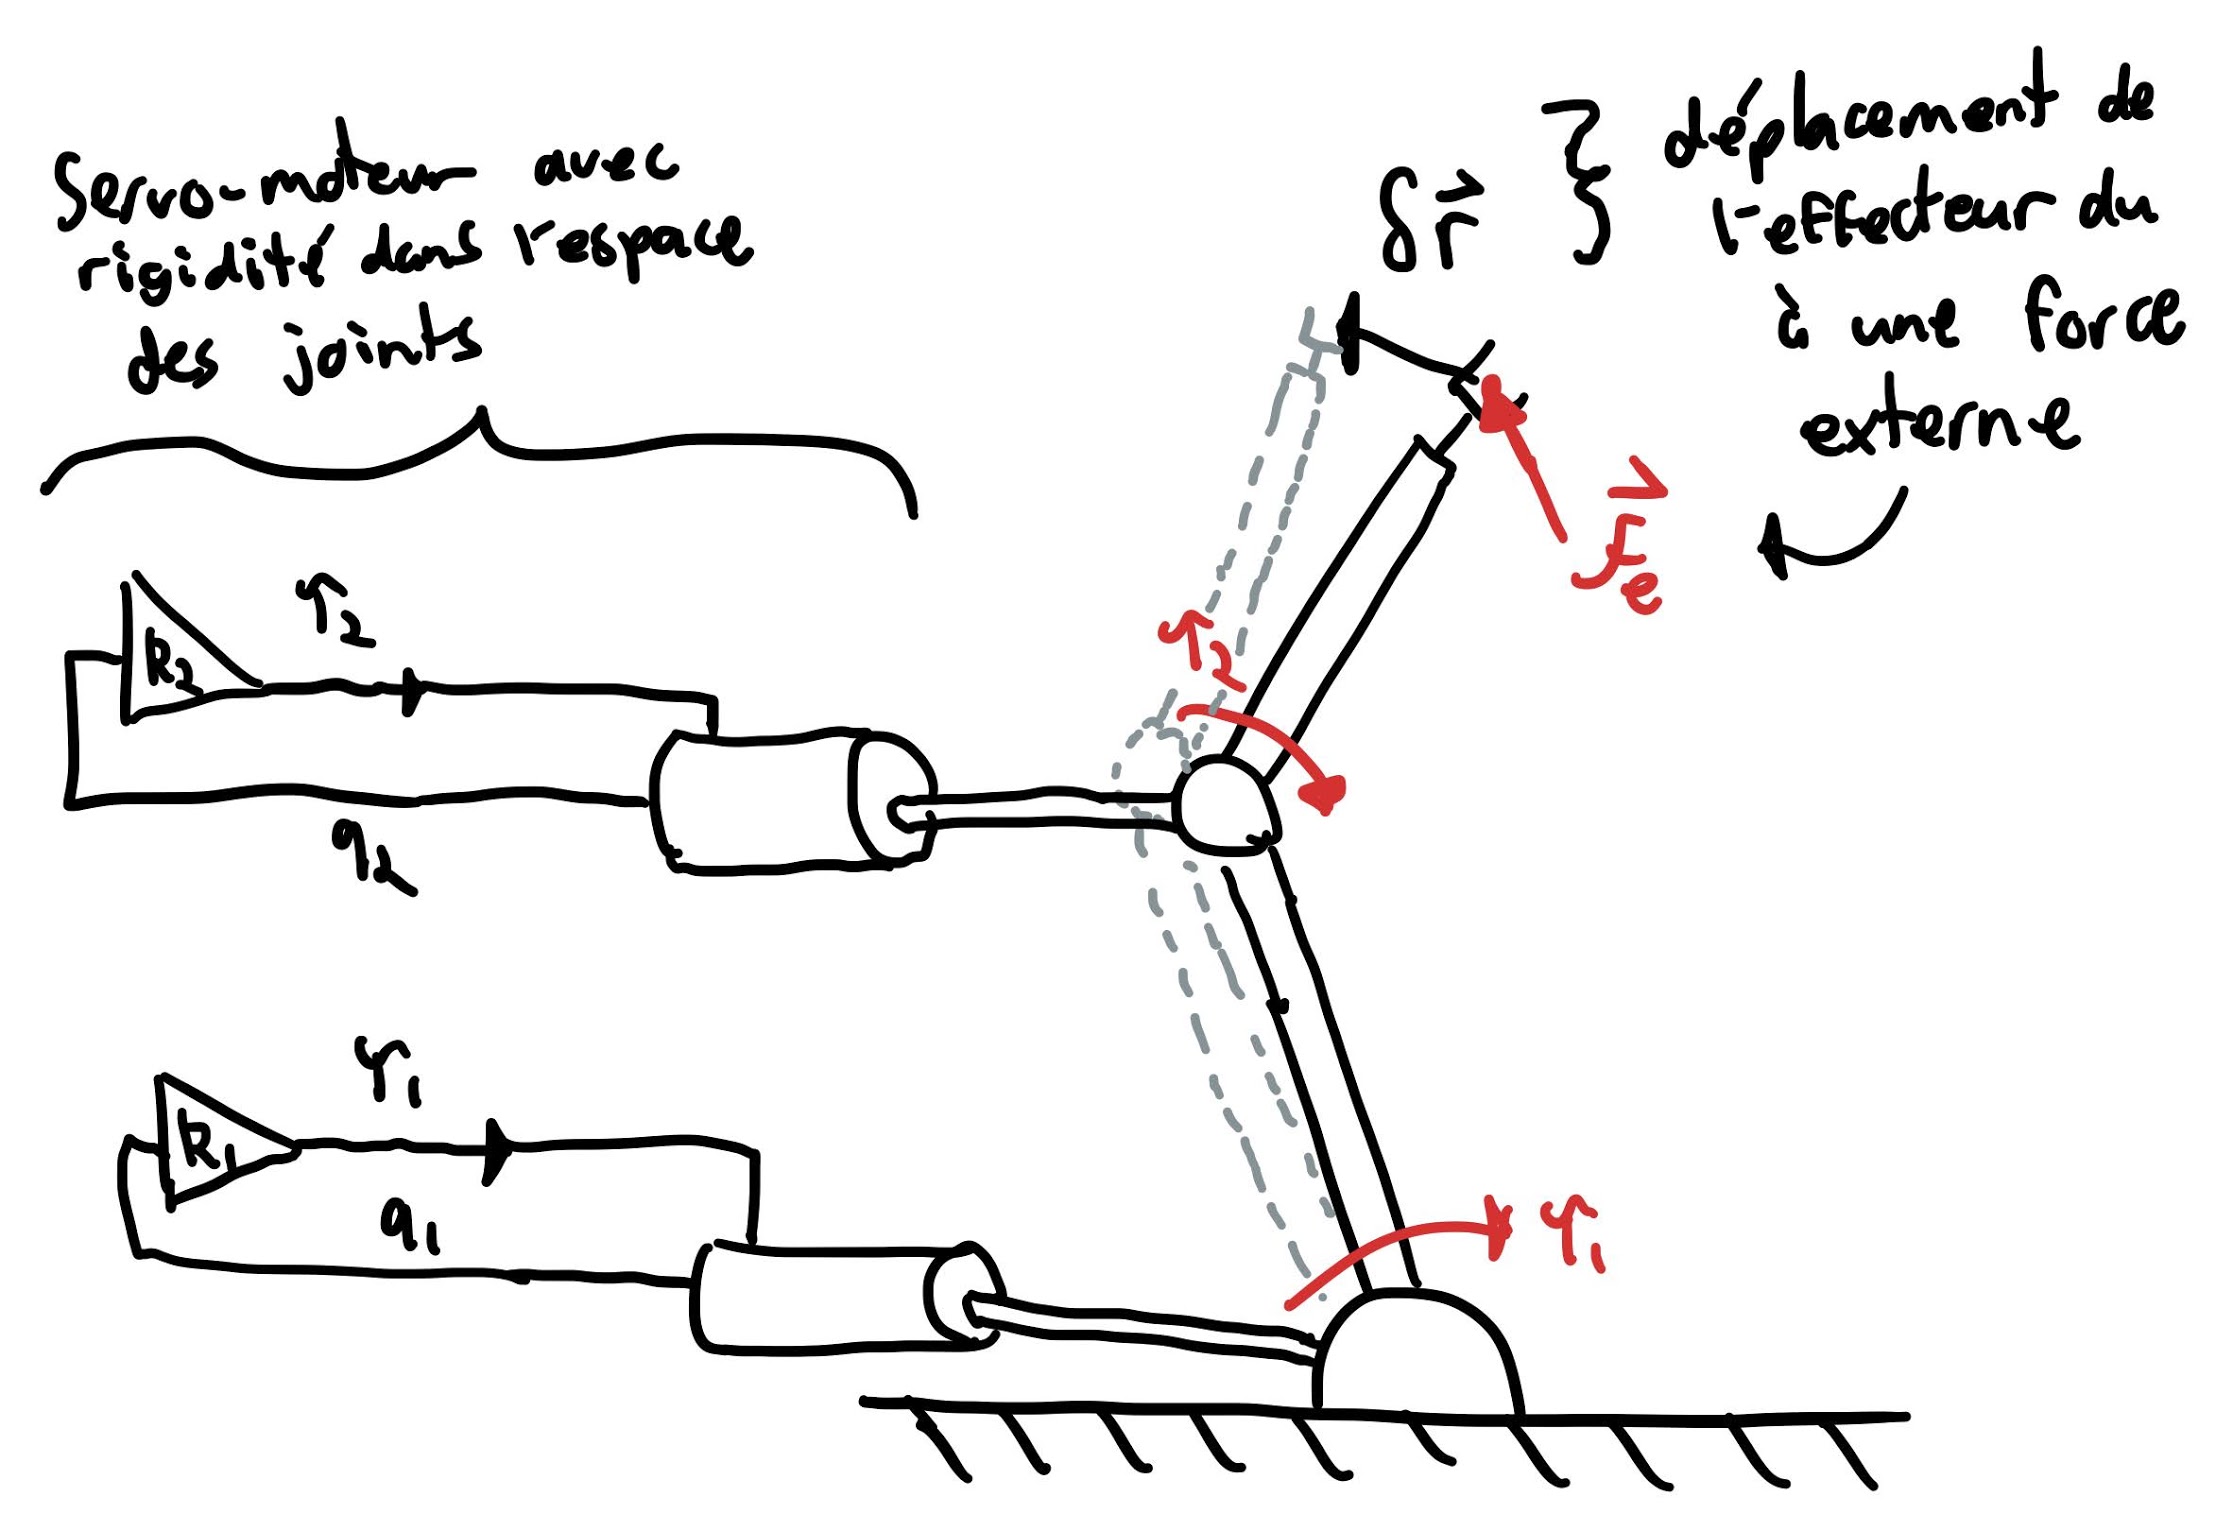 Servo-moteur avec
rigidité dans l'espace
des joints
δr⃗ } déplacement de
l'effecteur du
à une force
externe
f⃗e
τ2
k2
q2
τ2
τ1
k1
q1
τ1